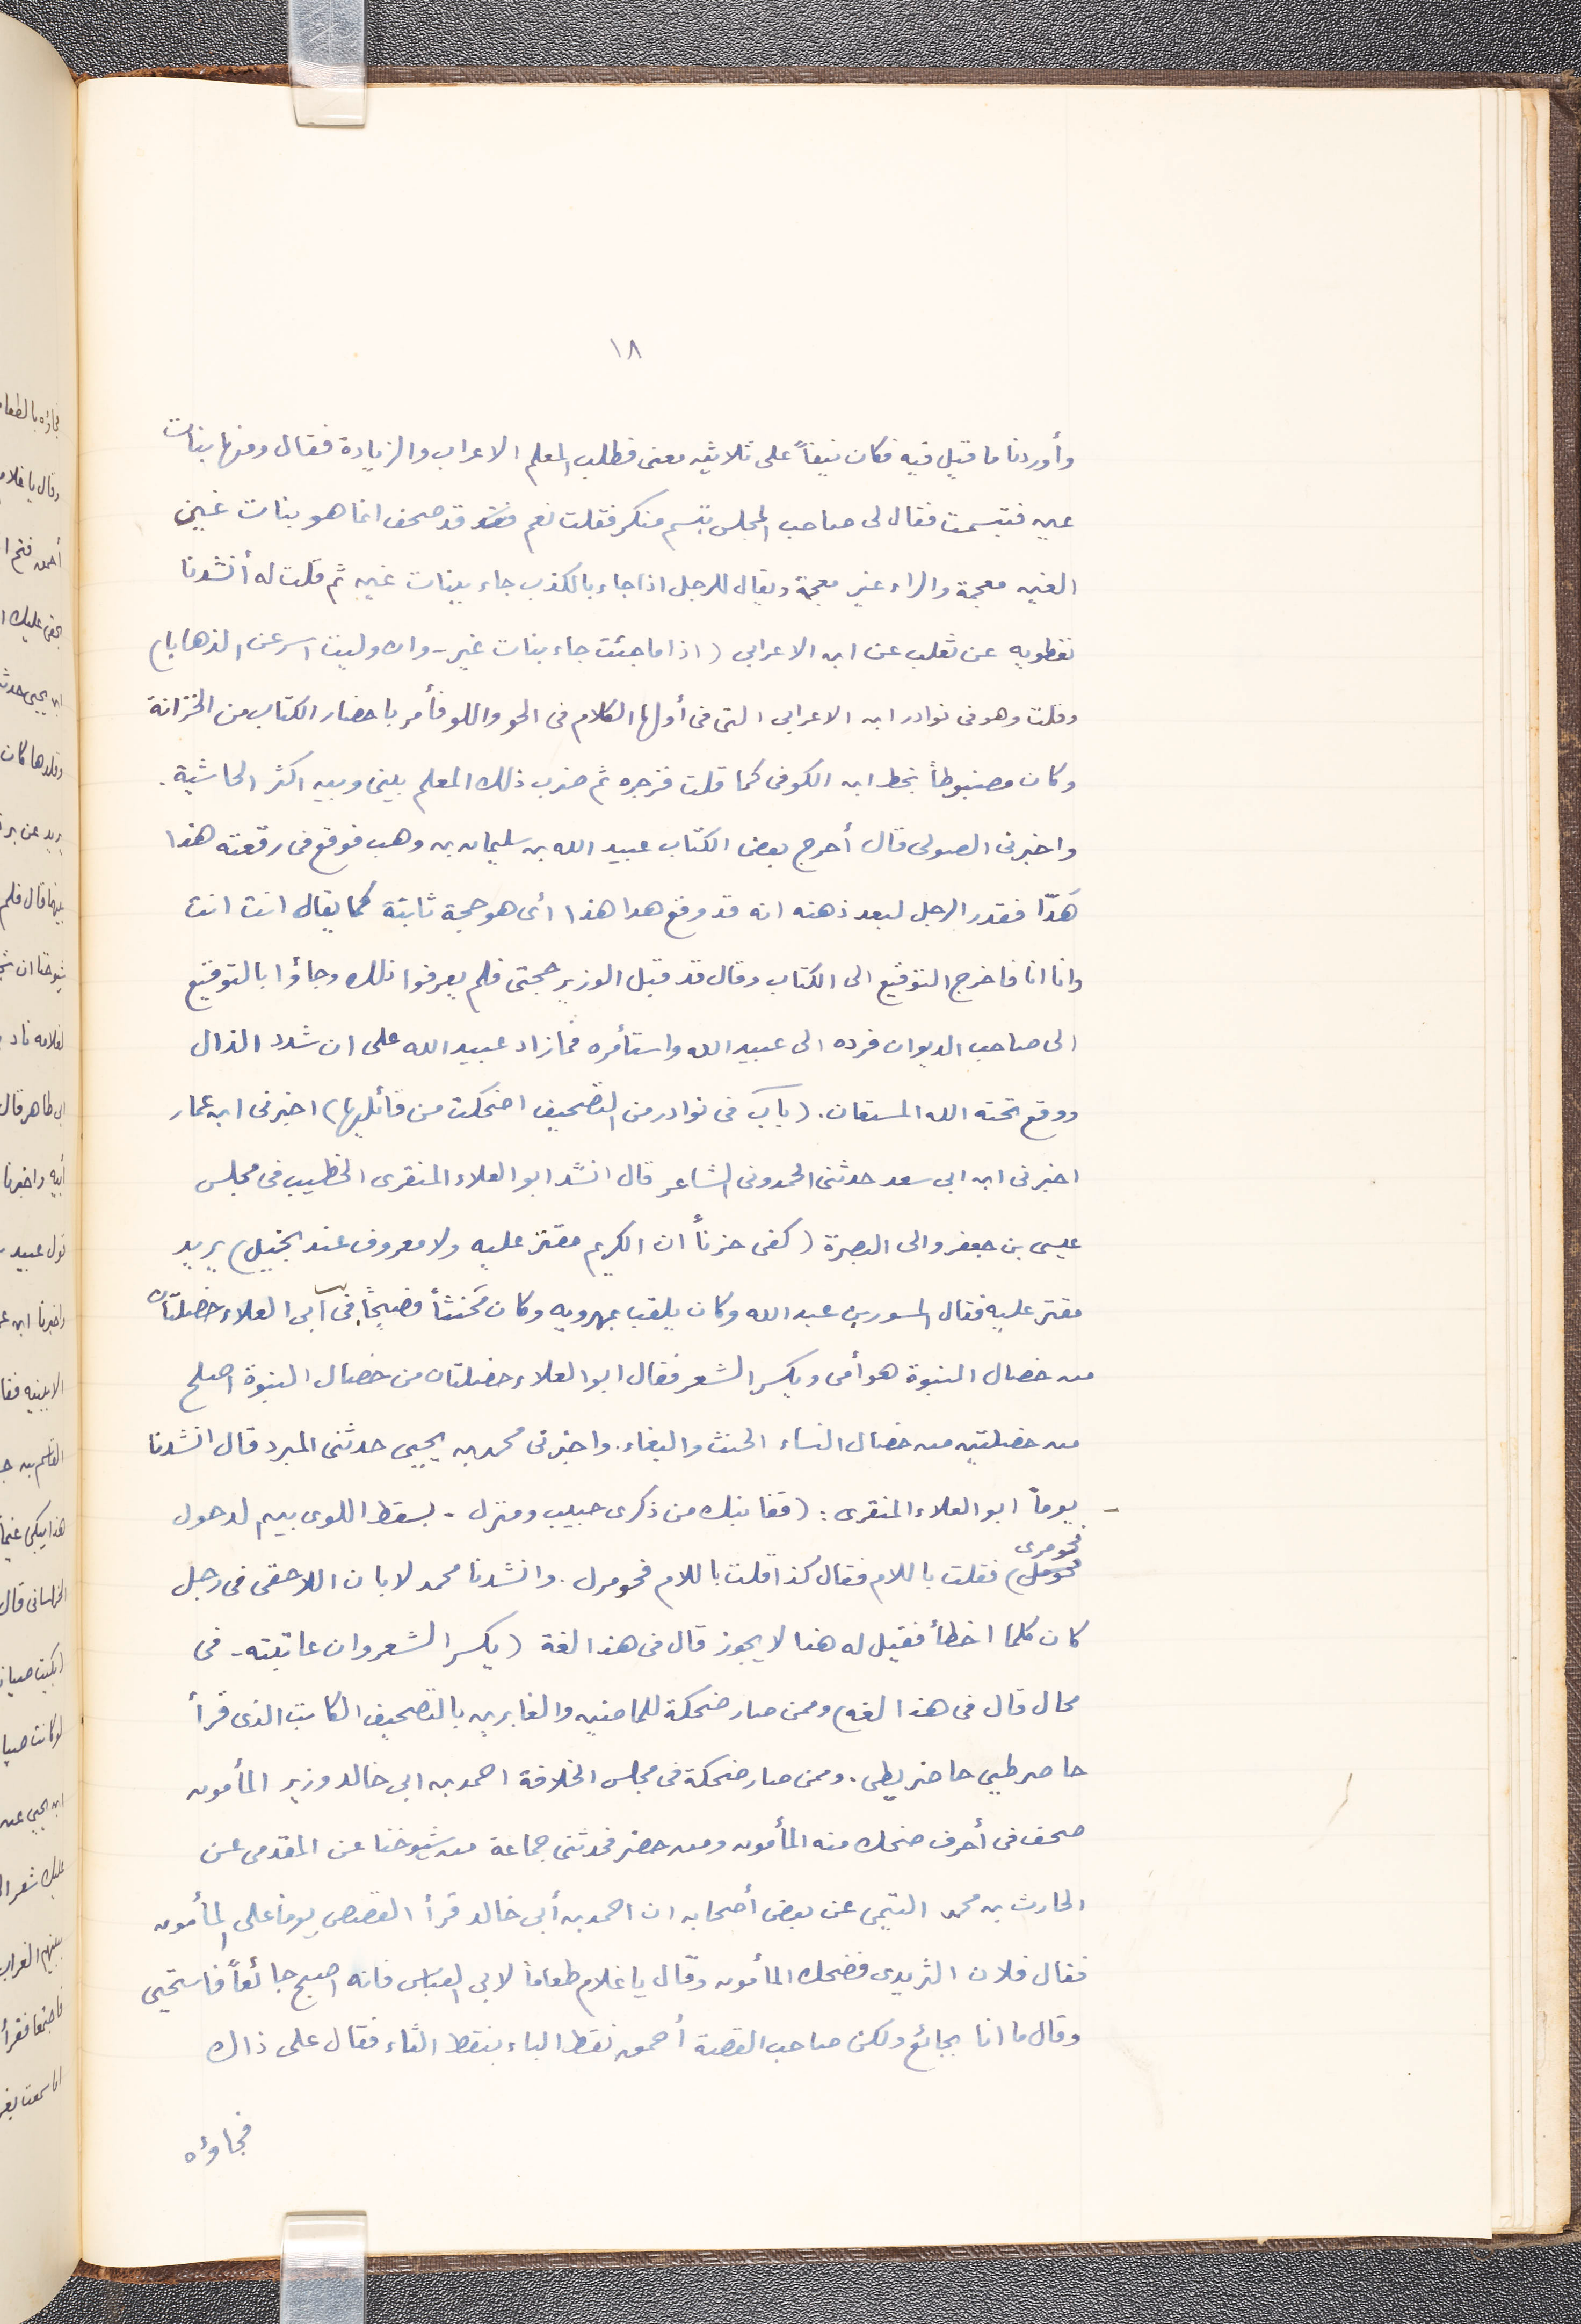 ١٨
وأوردنا ما قيل فيه فكان نيفاً على ثلاثين معنى فطلب المعلم الاعراب والزيادة فقال ومنها بنات
عين فتبسمت فقال لى صاحب المجلس تبتسم منكر فقلت نعم قد صحف انما هو بنات غين
الغين معجمة والراء غير معجمة ويقال للرجل اذا جاء بالكذب جاء ببنات غير ثم قلت له أنشدنا
نفطويه عن ثعلب عن ابن الاعرابي (اذا ما جئت جاء بنات غير - وان وليت اسرعن الذهابا)
وقلت وهو فى نوادر ابن الاعرابي التى فى أولها الكلام فى الحو واللو فأمر باحضار الكتاب من الخزانة
وكان مضبوطاً بخط ابن الكوفى كما قلت فزجره ثم ضرب ذلك المعلم بينى وبين اكثر الحاشية.
واخبرنى الصولى قال أحرج بعض الكتاب عبيد الله بن سليمان بن وهب فوقع فى رقعته هذا
هَدّا فقدر الرجل لبعد ذهنه انه قد وقع هدا هذا أى هو حجة ثابتة كما يقال انت انت
وانا انا فاخرج التوقيع الى الكتاب وقال قد قبل الوزير حجتى فلم يعرفوا ذلك وجاؤا بالتوقيع
الى صاحب الديوان فرده الى عبيد الله واستأمره فما زاد عبيد الله على ان شدد الذال
ووقع تحته الله المستعان. (باب فى نوادر من التصحيف اضحكت من قائليها) اخبرنى ابن عمار
اخبرنى ابن ابى سعد حدثنى الحمدونى الشاعر قال انشد ابو العلاء المنقرى الخطيب فى مجلس
عيسى بن جعفر والى البصرة (كفى حزناً ان الكريم مقتر عليه ولا معروف عند بخيل) يريد
مقتر عليه فقال المسور بن عبد الله وكان يلقب بمهرويه وكان مخنثاً فصيحاً فى أبى العلاء خصلتان
من خصال النبوة هو أمى ويكسر الشعر فقال ابو العلاء خصلتان من خصال النبوة اصلح
من خصلتين من خصال النساء الخنث والبغاء. واخبرنى محمد بن يحيى حدثنى المبرد قال انشدنا
- يوماً ابو العلاء المنقرى: (قفا نبك من ذكرى حبيب ومنزل - بسقط اللوى بين لدحول
فحومرى
فحومل) فقلت باللام فقال كذا قلت باللام فحومرل. وانشدنا محمد لابان اللاحقى فى رجل
كان كلما اخطأ فقيل له هنا لا يجوز قال فى هذا لغة (يكسر الشعر وان عاتبته - فى
محال قال فى هذا لغه) وممن صار ضحكة للماضين والغابرين بالتصحيف الكاتب الذى قرأ
حاصر طيى حاضر يطى. وممن صار ضحكة فى مجلس الخلافة احمد بن ابى خالد وزير المأمون
صحف فى أحرف ضحك منه المأمون ومن حضر فحدثنى جماعة من شيوخنا عن المقدمى عن
الحارث بن محمد التيمى عن بعض أصحابه ان احمد بن أبى خالد قرأ القصص يوما على المأمون
فقال فلان الثريدى فضحك المأمون وقال يا غلام طعاماً لابى العباس فانه اصبح جائعاً فاستحيى
وقال ما انا بجائع ولكن صاحب القصة أحمق نقط الباء بنقط الثاء فقال على ذاك
فجاوه